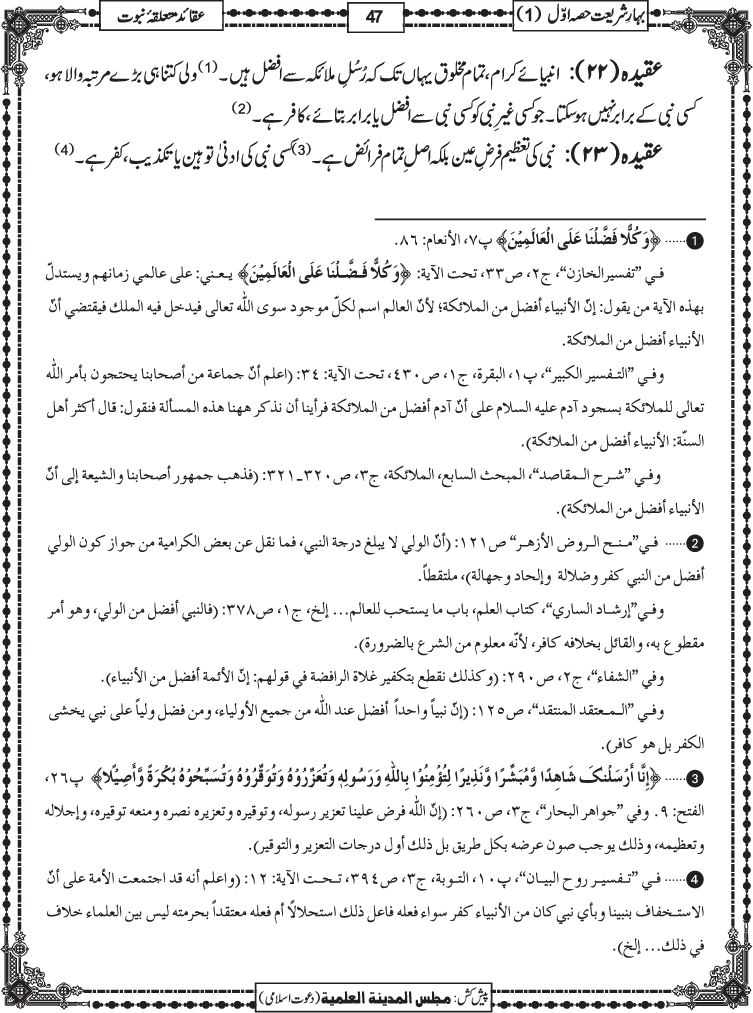 بہارِ شریعت حصہ اوّل (1)
47
عقائد متعلقۂ نبوت
عقیدہ (۲۲): انبیائے کرام، تمام مخلوق یہاں تک کہ رُسُلِ ملائکہ سے افضل ہیں۔(1) ولی کتنا ہی بڑے مرتبہ والا ہو،
کسی نبی کے برابر نہیں ہوسکتا۔ جو کسی غیرِ نبی کو کسی نبی سے افضل یا برابر بتائے، کافر ہے۔(2)
عقیدہ (۲۳): نبی کی تعظیم فرضِ عین بلکہ اصلِ تمام فرائض ہے۔(3) کسی نبی کی ادنیٰ توہین یا تکذیب، کفر ہے۔(4)
1 ...... ﴿وَكُلًّا فَضَّلْنَا عَلَى الْعَالَمِيْنَ﴾ پ۷، الأنعام: ۸۶.
في ”تفسير الخازن“، ج۲، ص۳۳، تحت الآية: ﴿وَكُلًّا فَضَّلْنَا عَلَى الْعَالَمِيْنَ﴾ يعني: على عالمي زمانهم ويستدلّ
بهذه الآية من يقول: إنّ الأنبياء أفضل من الملائكة؛ لأنّ العالم اسم لكلّ موجود سوى الله تعالى فيدخل فيه الملك فيقتضي أنّ
الأنبياء أفضل من الملائكة.
وفي ”التفسير الكبير“، پ۱، البقرة، ج۱، ص۴۳۰، تحت الآية: ۳۴: (اعلم أنّ جماعة من أصحابنا يحتجون بأمر الله
تعالى للملائكة بسجود آدم عليه السلام على أنّ آدم أفضل من الملائكة فرأينا أن نذكر ههنا هذه المسألة فنقول: قال أكثر أهل
السنّة: الأنبياء أفضل من الملائكة).
وفي ”شرح المقاصد“، المبحث السابع، الملائكة، ج۳، ص۳۲۰ـ۳۲۱: (فذهب جمهور أصحابنا والشيعة إلى أنّ
الأنبياء أفضل من الملائكة).
2 ...... في ”منح الروض الأزهر“ ص۱۲۱: (أنّ الولي لا يبلغ درجة النبي، فما نقل عن بعض الكرامية من جواز كون الولي
أفضل من النبي كفر وضلالة وإلحاد وجهالة)، ملتقطاً.
وفي ”إرشاد الساري“، كتاب العلم، باب ما يستحب للعالم... إلخ، ج۱، ص۳۷۸: (فالنبي أفضل من الولي، وهو أمر
مقطوع به، والقائل بخلافه كافر، لأنّه معلوم من الشرع بالضرورة).
وفي ”الشفاء“، ج۲، ص۲۹۰: (وكذلك نقطع بتكفير غلاة الرافضة في قولهم: إنّ الأئمة أفضل من الأنبياء).
وفي ”المعتقد المنتقد“، ص۱۲۵: (إنّ نبياً واحداً أفضل عند الله من جميع الأولياء، ومن فضل ولياً على نبي يخشى
الكفر بل هو كافر).
3 ...... ﴿إِنَّا أَرْسَلْنٰكَ شَاهِدًا وَّمُبَشِّرًا وَّنَذِيْرًا لِتُؤْمِنُوْا بِاللّٰهِ وَرَسُوْلِهٖ وَتُعَزِّرُوْهُ وَتُوَقِّرُوْهُ وَتُسَبِّحُوْهُ بُكْرَةً وَّأَصِيْلًا﴾ پ۲۶،
الفتح: ۹. وفي ”جواهر البحار“، ج۳، ص۲۶۰: (إنّ الله فرض علينا تعزير رسوله، وتوقيره وتعزيره نصره ومنعه توقيره، وإجلاله
وتعظيمه، وذلك يوجب صون عرضه بكل طريق بل ذلك أول درجات التعزير والتوقير).
4 ...... في ”تفسير روح البيان“، پ۱۰، التوبة، ج۳، ص۳۹۴، تحت الآية: ۱۲: (واعلم أنه قد اجتمعت الأمة على أنّ
الاستخفاف بنبينا وبأي نبي كان من الأنبياء كفر سواء فعله فاعل ذلك استحلالاً أم فعله معتقداً بحرمته ليس بين العلماء خلاف
في ذلك... إلخ).
پیش کش: مجلس المدينة العلمية (دعوتِ اسلامی)